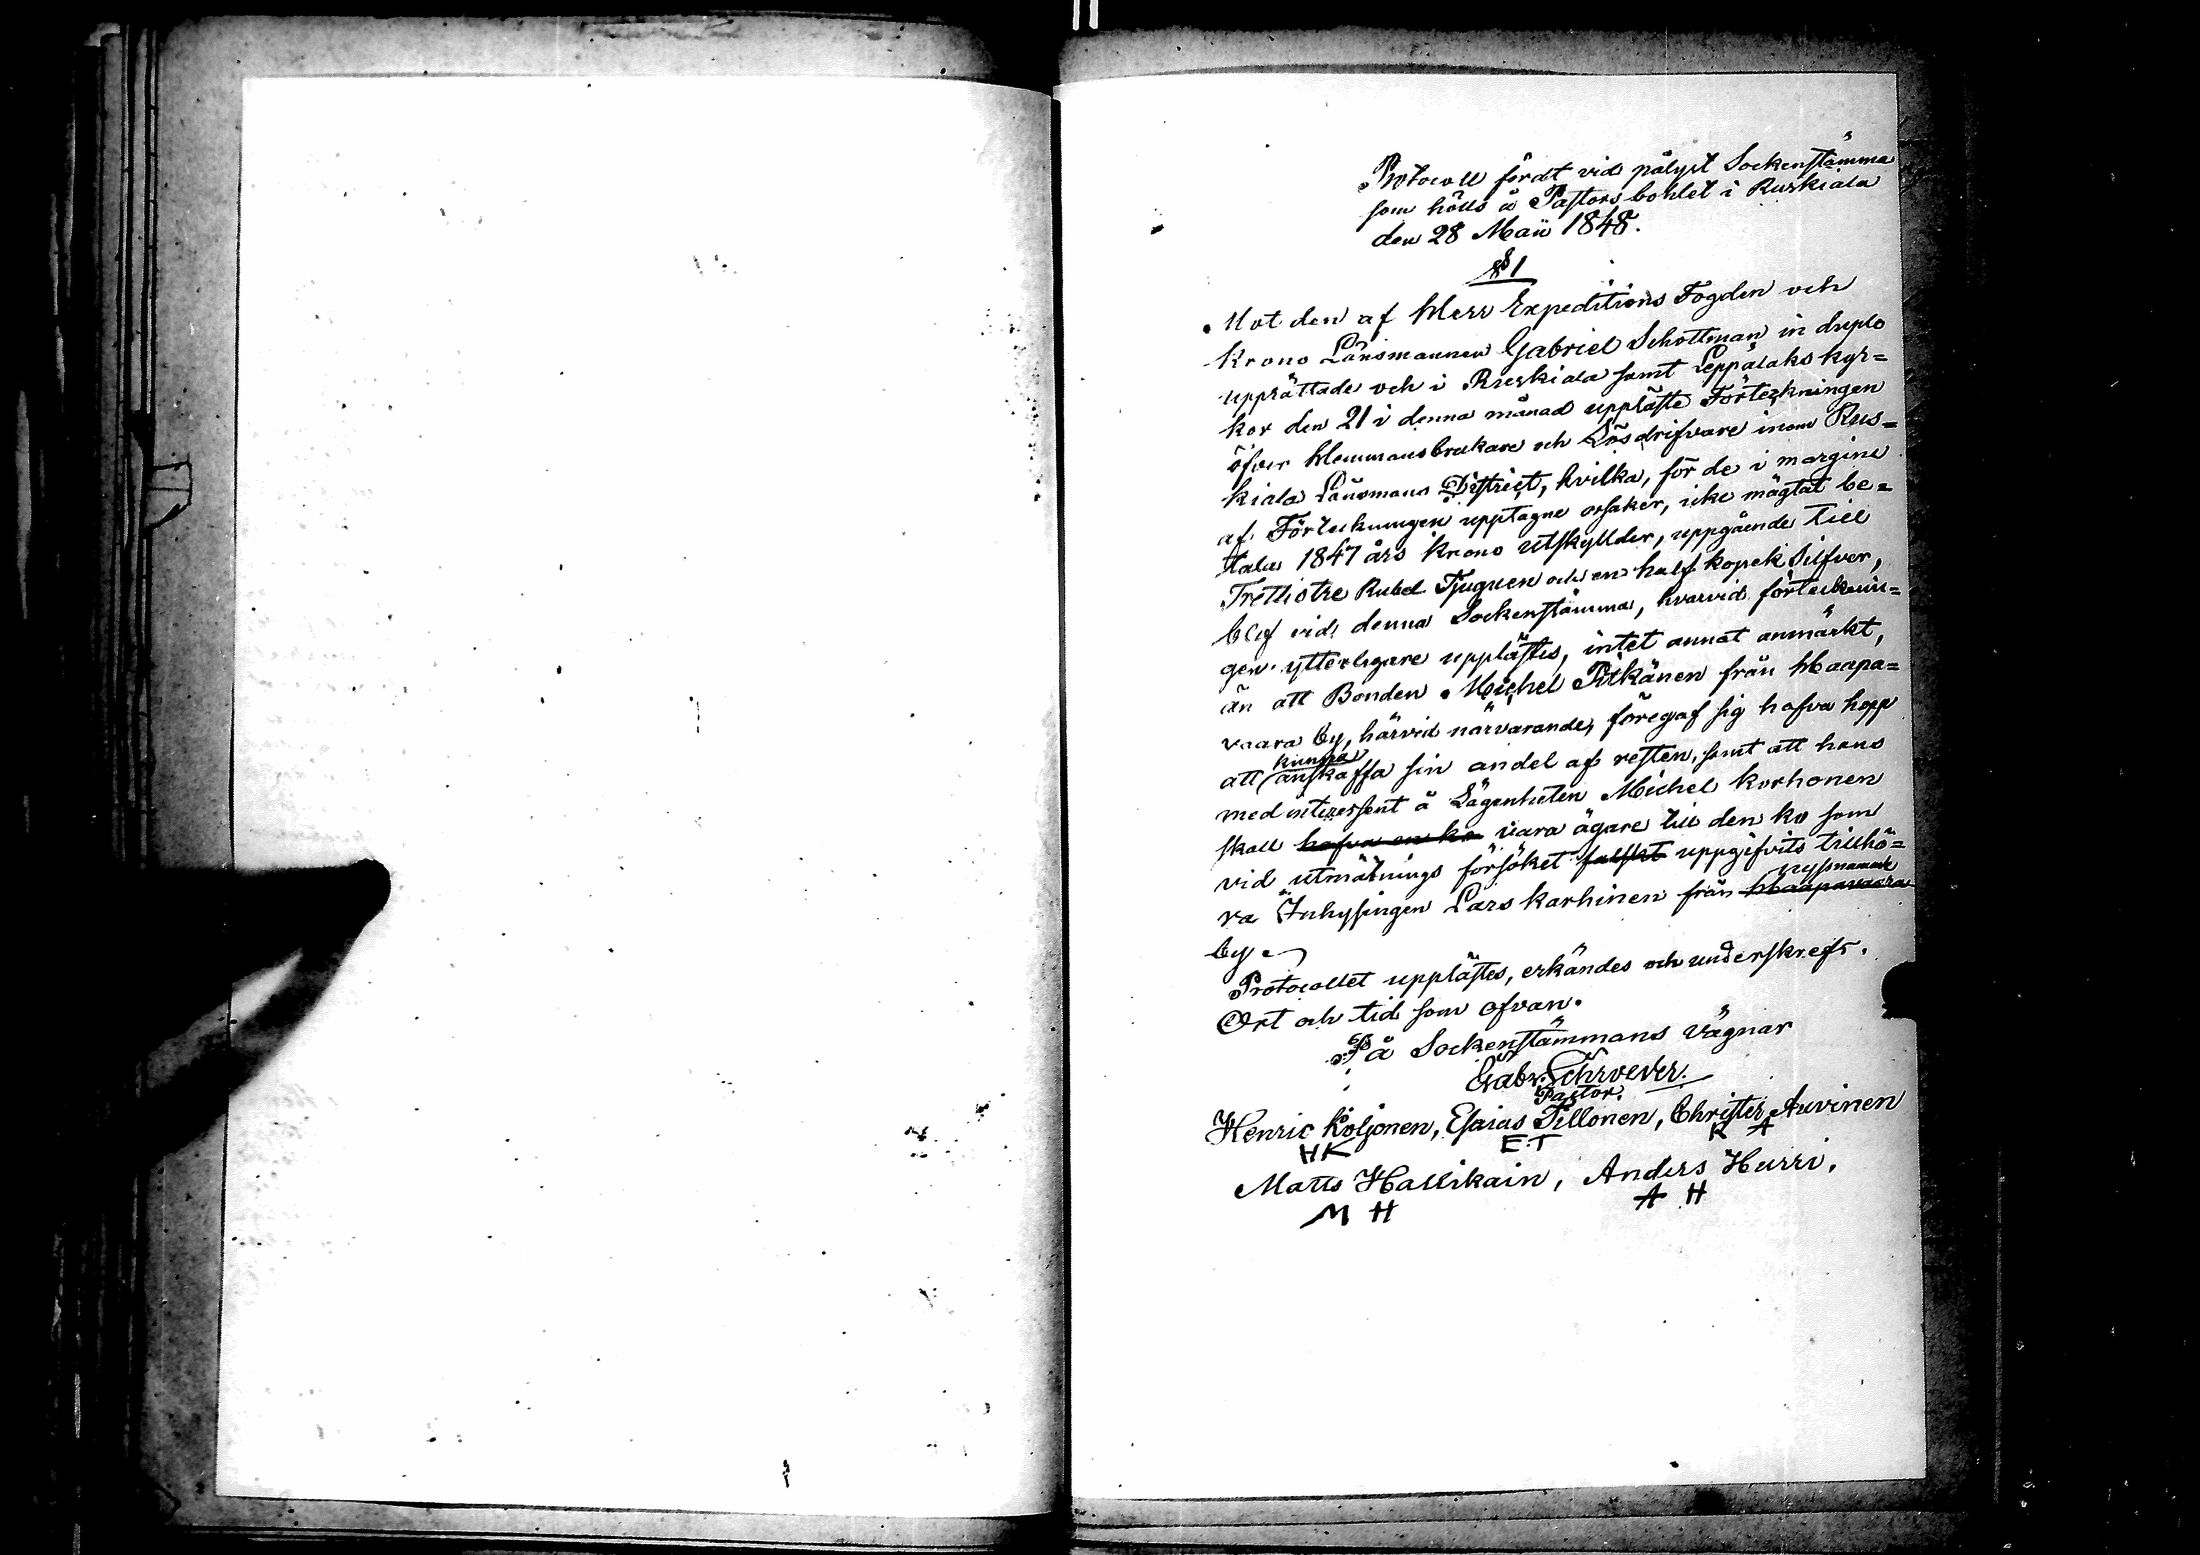 Protocoll fördt vid pålyst Sockenstämma
som hölls å Pastors bohlet i Ruskiala
den 28 Maii 1848.
§ 1
Mot den af Herr Expeditions Fogden och
Krono Länsmannen Gabriel Schottman in duplo
upprättade och i Ruskiala samt Leppälaks kyr=
kor den 21 i denna månad uppläste Förtekningen
öfver Hemmansbrukare och Lösdrifvare inom Rus=
kiala Länsmans District, hvilka, för de i margine
af Förtekningen upptagne orsaker, icke mägtat be=
tala 1847 års Krono utskyllder, uppgående till
Trettiotre Rubel Tjuguen och en half kopek Silfver,
blef vid denna Sockenstämma, hvarvid förteknin=
gen ytterligare upplästes, intet annat anmärkt,
än att Bonden Michel Pitkänen från Haapa=
vaara by, härvid närvarande, föregaf sig hafva hopp
att kunna anskaffa sin andel af resten, samt att hans
med interessent å Lägenheten Michel Korhonen
skall hafva en ko vara ägare till den ko som
vid utmätnings försöket falskt uppgifvits tillhö=
ra Inhysingen Lars Karhinen från Haapavaara nyssnämnde
by.
Protocollet upplästes, erkändes och underskrefs.
Ort och tid som ofvan.
På Sockenstämmans vägnar
Gabr. Schroeder.
Pastor.
Henric Koljonen, Esaias Tillonen, Christer Auvinen
HK E.T K A
Matts Hallikain, Anders Hurri.
M H A H